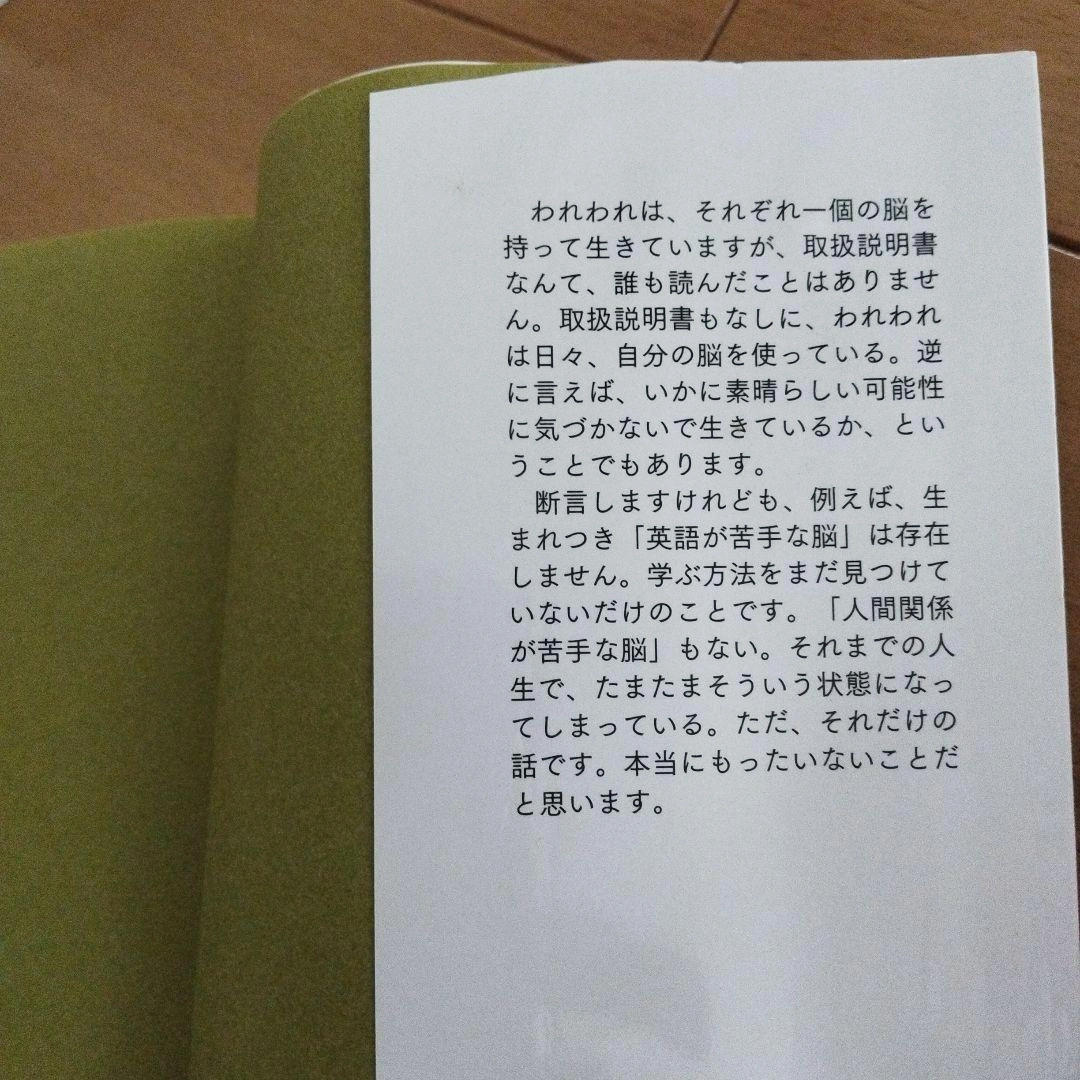 われわれは、それぞれ一個の脳を
持って生きていますが、取扱説明書
なんて、誰も読んだことはありませ
ん。取扱説明書もなしに、われわれ
は日々、自分の脳を使っている。逆
に言えば、いかに素晴らしい可能性
に気づかないで生きているか、とい
うことでもあります。
断言しますけれども、例えば、生
まれつき「英語が苦手な脳」は存在
しません。学ぶ方法をまだ見つけて
いないだけのことです。「人間関係
が苦手な脳」もない。それまでの人
生で、たまたまそういう状態になっ
てしまっている。ただ、それだけの
話です。本当にもったいないことだ
と思います。